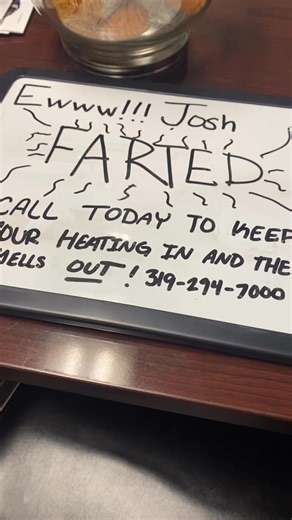 Ewww!!! Josh
FARTED
CALL TODAY TO KEEP
YOUR HEATING IN AND THE
SMELLS OUT! 319-294-7000